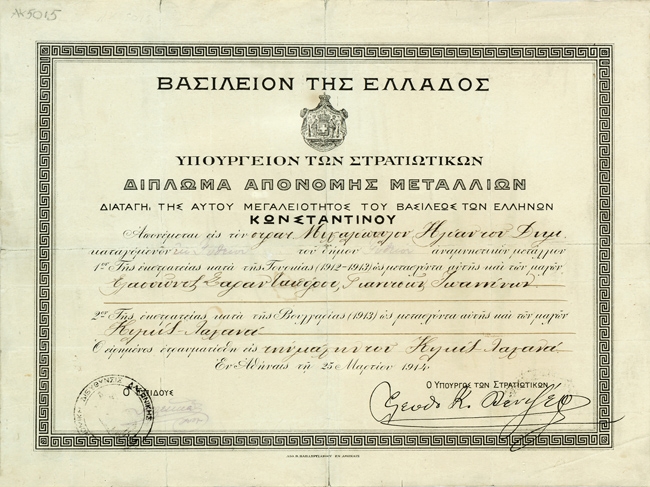 ΑΚ5015
ΒΑΣΙΛΕΙΟΝ ΤΗΣ ΕΛΛΑΔΟΣ
ΥΠΟΥΡΓΕΙΟΝ ΤΩΝ ΣΤΡΑΤΙΩΤΙΚΩΝ
ΔΙΠΛΩΜΑ ΑΠΟΝΟΜΗΣ ΜΕΤΑΛΛΙΩΝ
ΔΙΑΤΑΓΗ, ΤΗΣ ΑΥΤΟΥ ΜΕΓΑΛΕΙΟΤΗΤΟΣ ΤΟΥ ΒΑΣΙΛΕΩΣ ΤΩΝ ΕΛΛΗΝΩΝ
ΚΩΝΣΤΑΝΤΙΝΟΥ
Απονέμεται εις τον στρατ Μιχαλόπουλον Ηλίαν του Δημ
καταγόμενον του δήμου αναμνηστικόν μετάλλιον
1ον Της εκστρατείας κατά της Τουρκίας (1912-1913) ως μετασχόντα αυτής και των μαχών
Σαρανταπόρου, Γιαννιτσών, Ιωαννίνων
2ον Της εκστρατείας κατά της Βουλγαρίας (1913) ως μετασχόντα αυτής και των μαχών
Κιλκίς Λαχανά
Ο ειρημένος ετραυματίσθη εις την μάχην του Κιλκίς Λαχανά
Εν Αθήναις τη 25 Μαρτίου 1914
Ο ΕΠΙΔΟΥΣ
Ο ΥΠΟΥΡΓΟΣ ΤΩΝ ΣΤΡΑΤΙΩΤΙΚΩΝ
Ελευθ Κ. Βενιζέλος